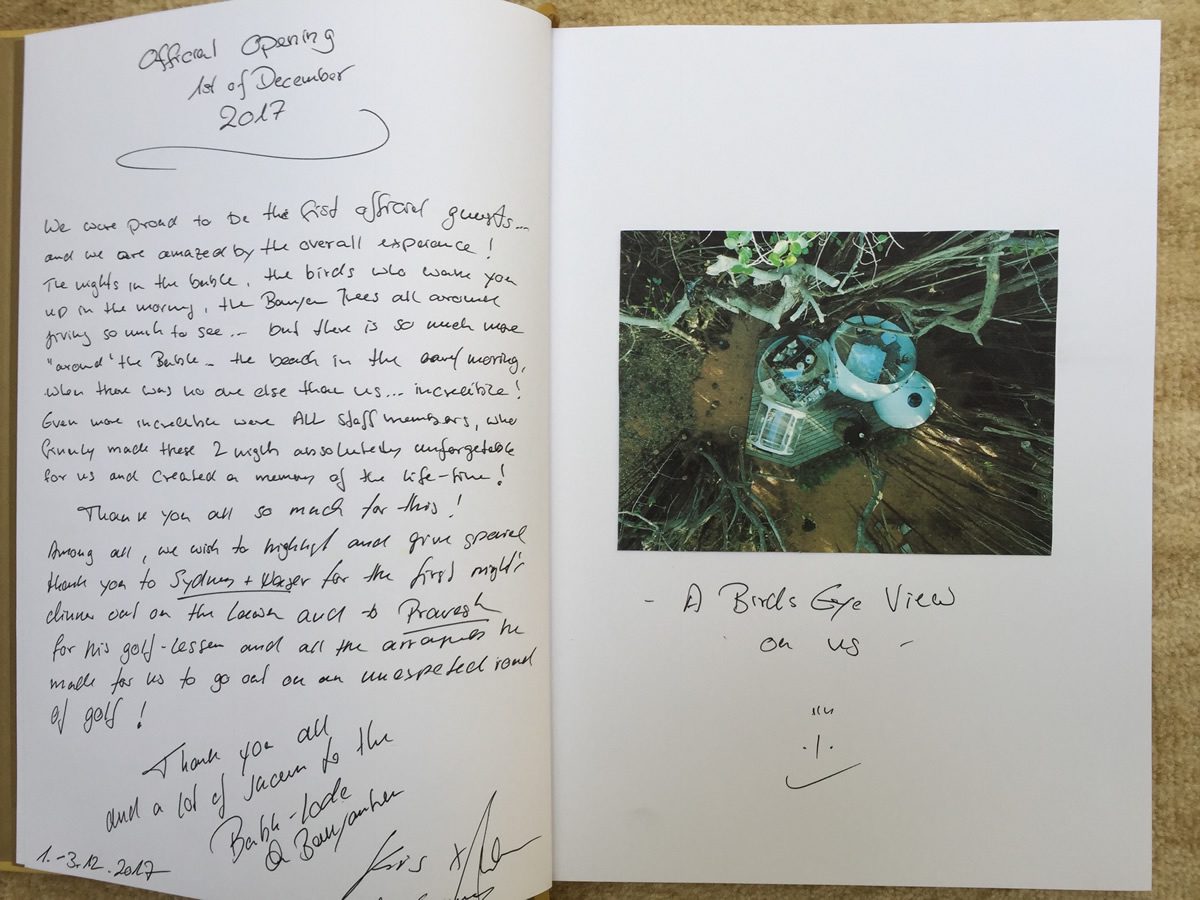 Official Opening
1st of December
2017
We were proud to be the first official guests...
and we are amazed by the overall experiance!
The nights in the buble, the birds who wake you
up in the morning, the Banyan Trees all around
giving so much to see... but there is so much more
"around" the Buble - the beach in the early morning,
when there was no one else than us... incredible!
Even more incredible were ALL staff members, who
finally made these 2 nights absolutely unforgetable
for us and created a memory of the life-time!
Thank you all so much for this!
Among all, we wish to highlight and give special
thank you to Sydney + for the first night's
dinner out on the lawn and to Pravesh
for his golf-lesson and all the he
made for us to go out on an unexpected round
of golf!
Thank you all
and a lot of to the
Buble-Lodge
@
1.-3.12.2017
Kris +
- A Birds Eye View
on us -